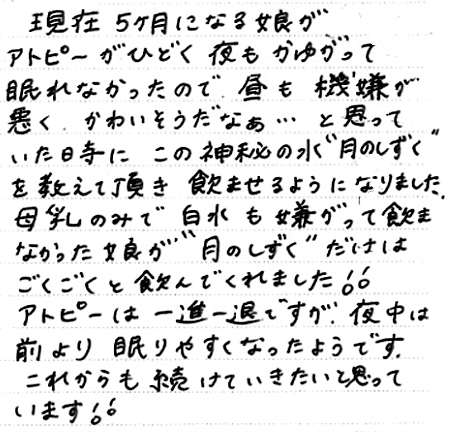 現在 5ケ月になる娘が
アトピーがひどく 夜も かゆがって
眠れなかったので 昼も 機嫌が
悪く かわいそうだなぁ… と思って
いた時に この神秘の水“月のしずく”
を教えて頂き 飲ませるようになりました。
母乳のみで 白水も嫌がって飲ま
なかった娘が “月のしずく” だけは
ごくごくと飲んでくれました!!
アトピーは 一進一退ですが、夜中は
前より 眠りやすくなったようです。
これからも 続けていきたいと思って
います!!